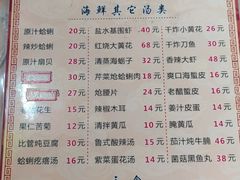 海鲜其它汤类
原汁蛤蜊 20元
辣炒蛤蜊 20元
原汁扇贝 28元
30元
15元
花生 15元
果仁苦菊 12元
比管炖豆腐 30元
蛤蜊疙瘩汤 16元
盐水基围虾 40元
红烧大黄花 68元
清蒸海蛎子 32元
芹菜炝蛤蜊肉 30元
炝腰片 24元
辣椒木耳 14元
清拌黄瓜 10元
鲁式酸辣汤 15元
紫菜蛋花汤 14元
干炸小黄花 26元
干炸刀鱼 30元
香辣大虾 48元
爽口海蜇皮 24元
老醋蜇皮 24元
姜汁皮蛋 14元
腌黄瓜 14元
茄汁炖牛腩 46元
菌菇黑鱼丸 38元